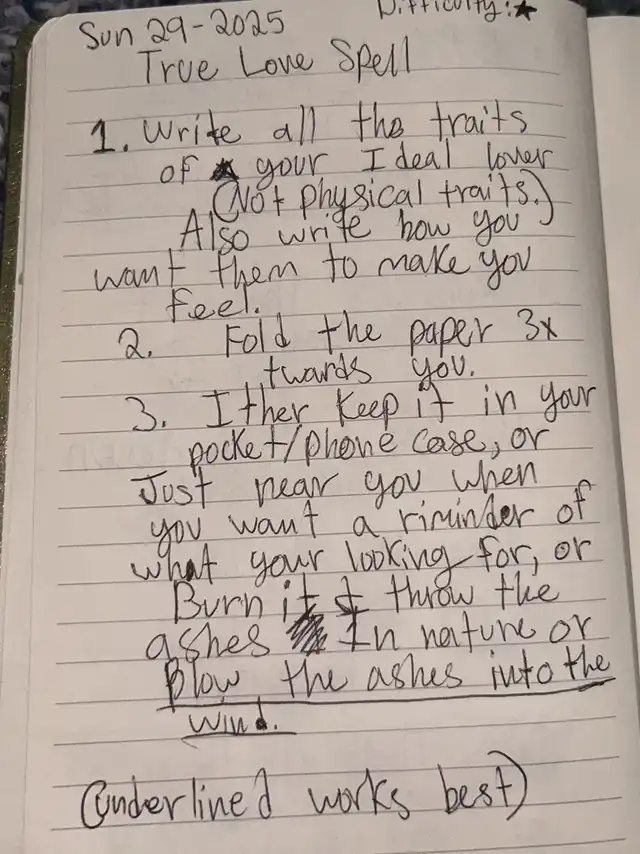 Difficulty: ★
Sun 29-2025
True Love Spell
1. Write all the traits
of your Ideal lover
(Not physical traits.)
Also write how you
want them to make you
feel.
2. Fold the paper 3x
twards you.
3. Ither keep it in your
pocket/phone case, or
Just near you when
you want a riminder of
what your looking for, or
Burn it & throw the
ashes In nature or
Blow the ashes into the
wind.
(underlined works best)